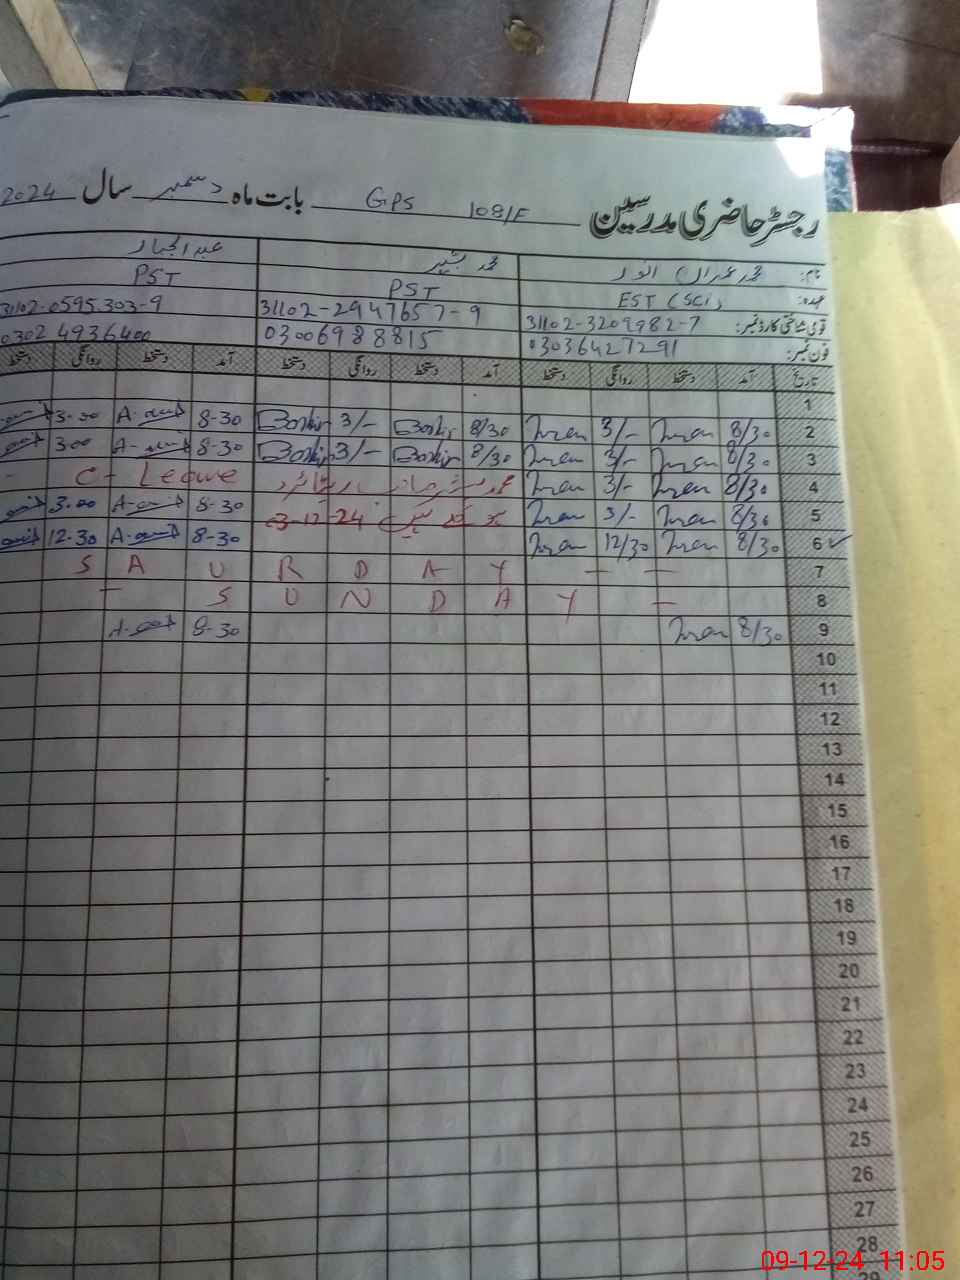 رجسٹر حاضری مدرسین GPS 108/F بابت ماہ دسمبر سال 2024
نام: محمد عمران انور محمد بشیر عبدالجبار
عہدہ: EST (SCI) PST PST
قومی شناختی کارڈ نمبر: 31102-3209982-7 31102-2947657-9 31102-0595303-9
فون نمبر: 03036427291 03006988815 0302 4936400
تاریخ آمد دستخط روانگی دستخط آمد دستخط روانگی دستخط آمد دستخط روانگی دستخط
1
2 8/30 Imran 3/- Imran 8/30 Bashir 3/- Bashir 8-30 3-00
3 8/30 Imran 3/- Imran 8/30 Bashir 3/- Bashir 8-30 300
4 8/30 Imran 3/- Imran محمد بشیر صاحب ریٹائرڈ C- Leave
5 8/30 Imran 3/- Imran ہو گئے ہیں 03-12-24 8-30 3.00
6 8/30 Imran 12/30 Imran 8-30 12.30
7 S A U R D A Y
8 S U N D A Y
9 8/30 Imran 8-30
10
11
12
13
14
15
16
17
18
19
20
21
22
23
24
25
26
27
28
29
09-12-24 11:05